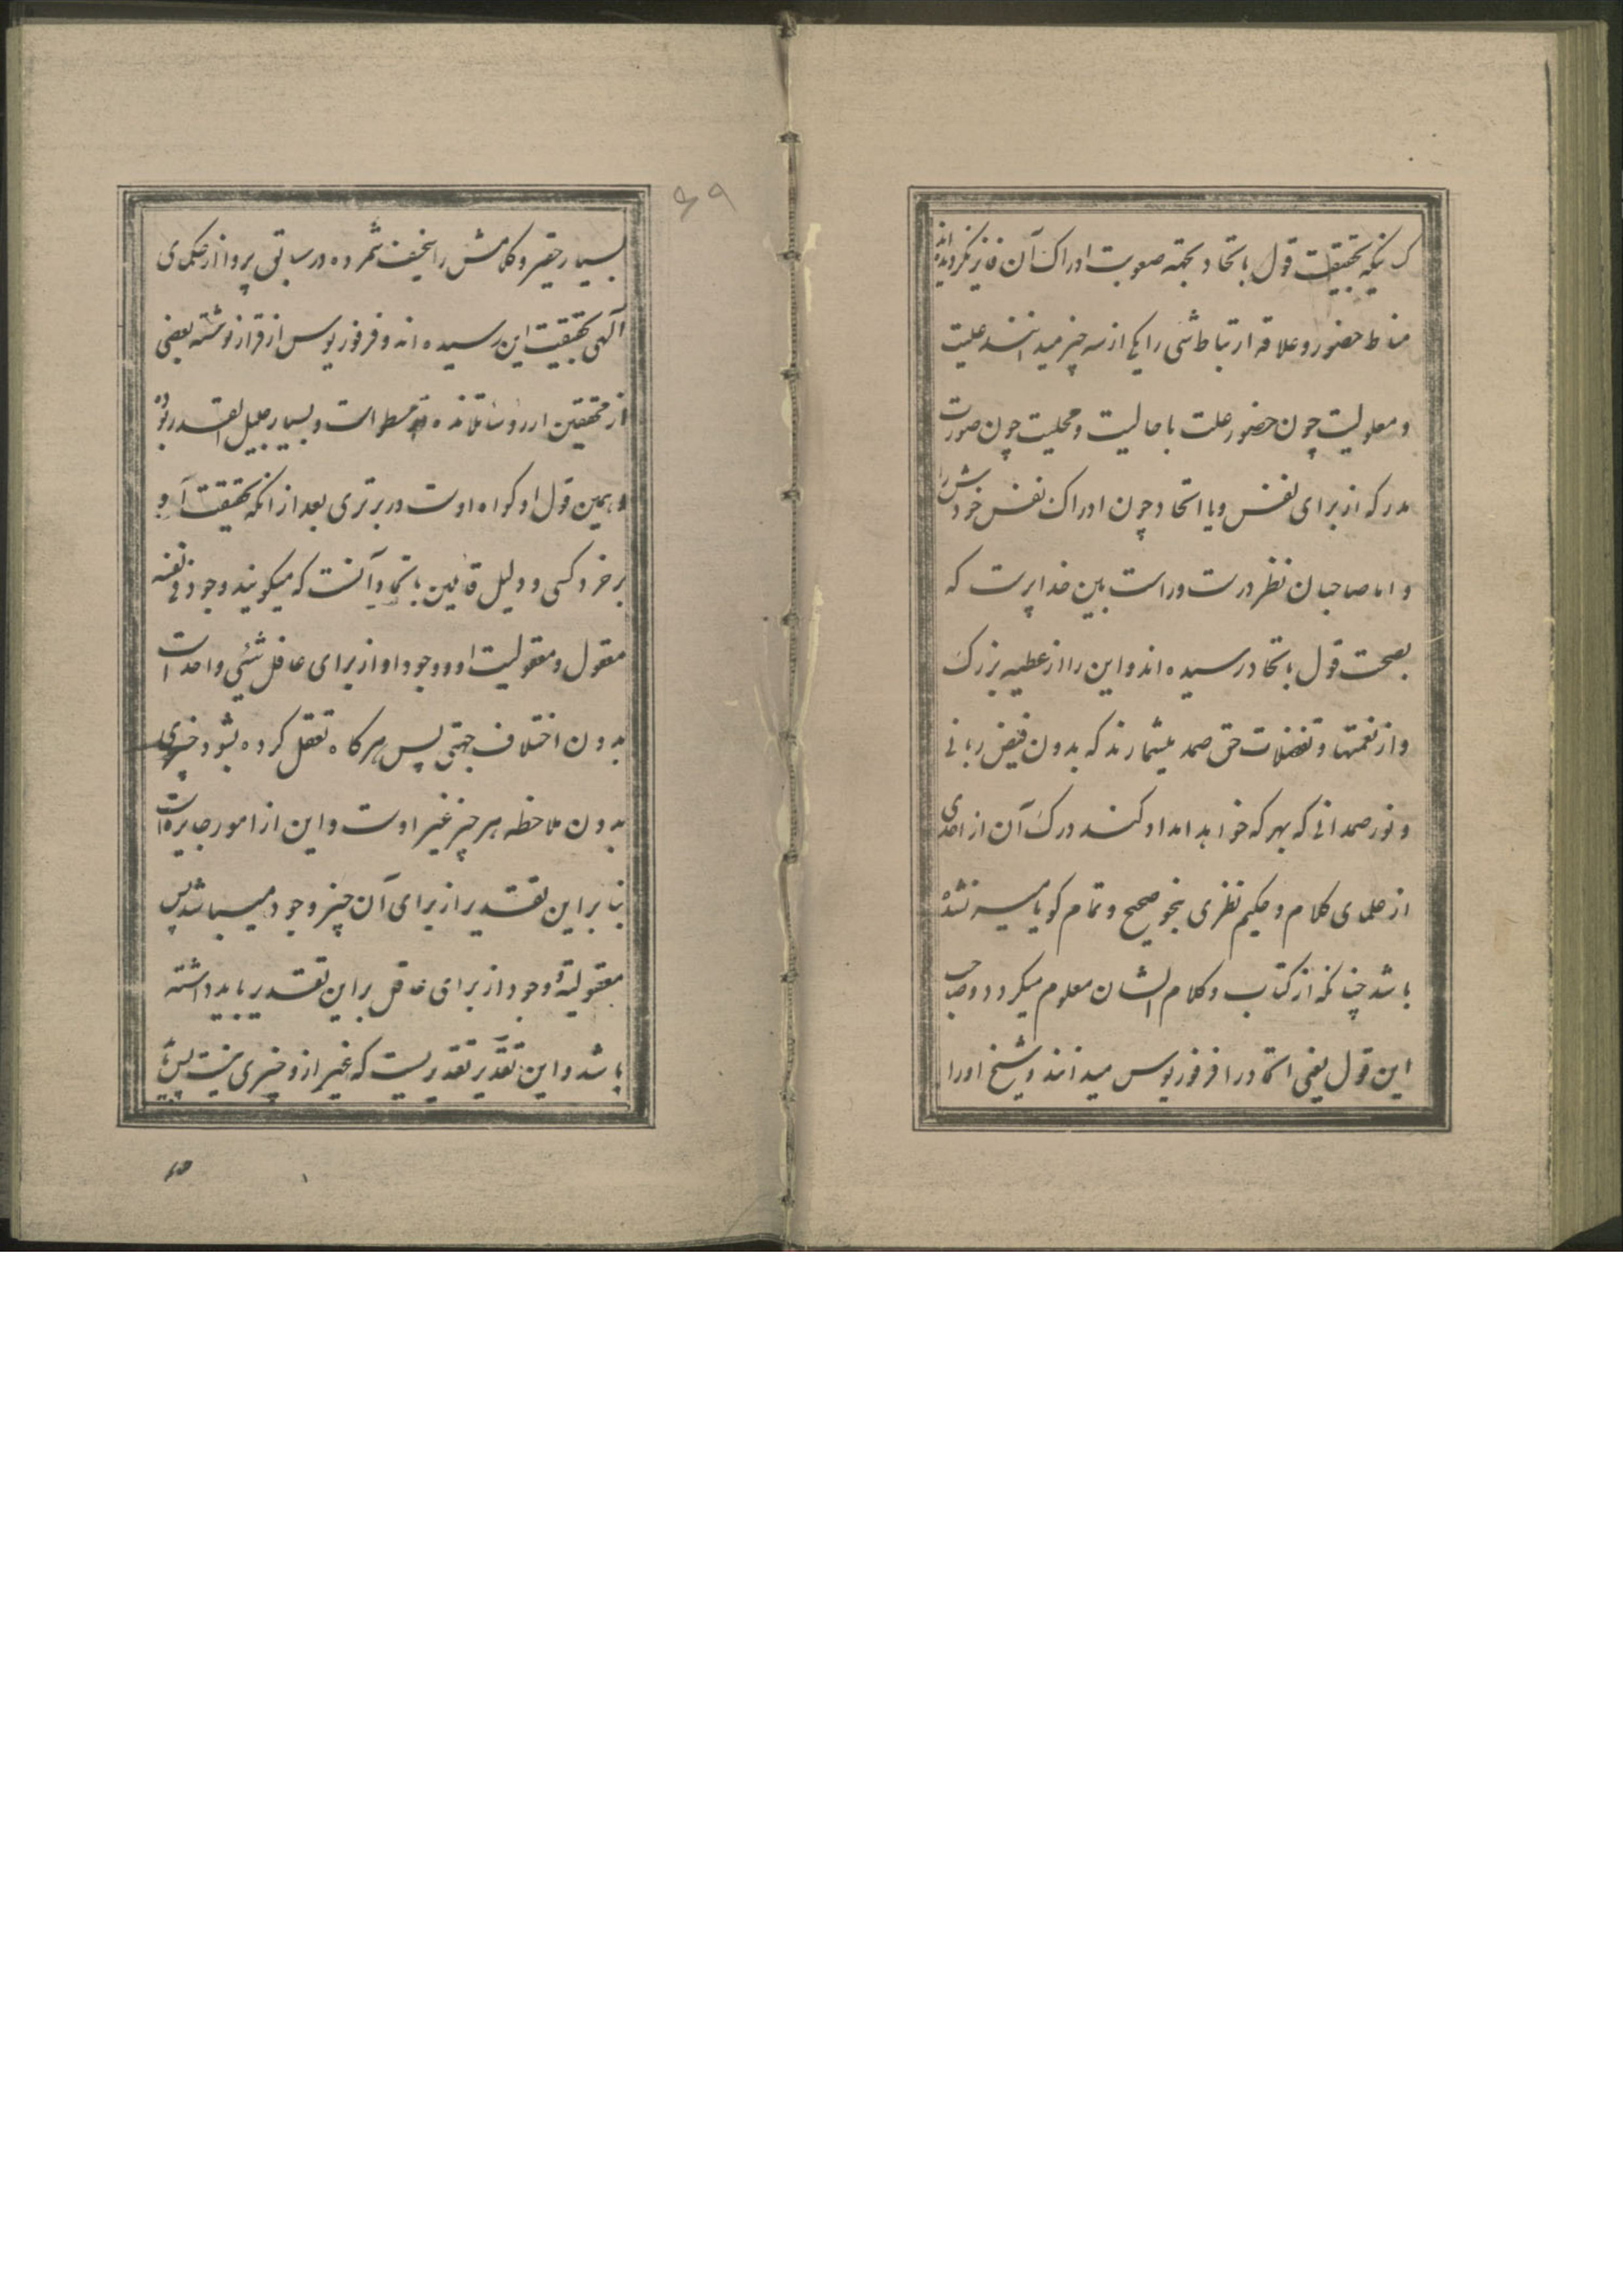 کسانیکه بحقیقت قول باتحاد بجهة صعوبت ادراک آن فایز نگردیده‌اند
مناط حضور و علاقه ارتباط شی را یکی از سه چیز میدانند علیت
و معلولیت چون حضور علت با حالیت و محلیت چون صورت
مدرکه از برای نفس و یا اتحاد چون ادراک نفس خودش را
و اما صاحبان نظر درست و راست بین خداپرست که
بصحت قول باتحاد رسیده اند و این را از عطیه بزرک
و از نعمتها و تفضلات حق صمد میشمارند که بدون فیض ربانی
و نور صمدانی که بهر که خواهد امداد کند درک آن از احدی
از علمای کلام و حکیم نظری بنحو صحیح و تمام کویا میسر نشده
باشد چنانکه از کتاب و کلام ایشان معلوم میکردد و صاحب
این قول یعنی اتحاد را فرفوریوس میدانند و شیخ او را
۶۹
بسیار حقیر و کلامش را سخیف شمرده و در سابق پروا از حکمای
آلهی بحقیقت این رسیده اند و فرفوریوس از قرار نوشته بعضی
از محققین ارروسا تلامذه ارسطو است و بسیار جلیل القدر بوده
و همین قول او کواه اوست در برتری بعد از انکه بحقیقت آن
برخورد کسی و دلیل قائلین باتحاد آنست که میکویند وجود فی نفسه
معقول و معقولیت او و وجود او از برای عاقل شیئی واحد است
بدون اختلاف جهتی پس هر کاه تعقل کرده بشود چیزی
بدون ملاحظه هر چیز غیر اوست و این از امور جایزه است
بنا بر این تقدیر از برای آن چیز وجود میباشد پس
معقولیة وجود از برای عاقل بر این تقدیر باید داشته
باشد و این تقدیر تقدیریست که غیر از و چیزی نیست پس